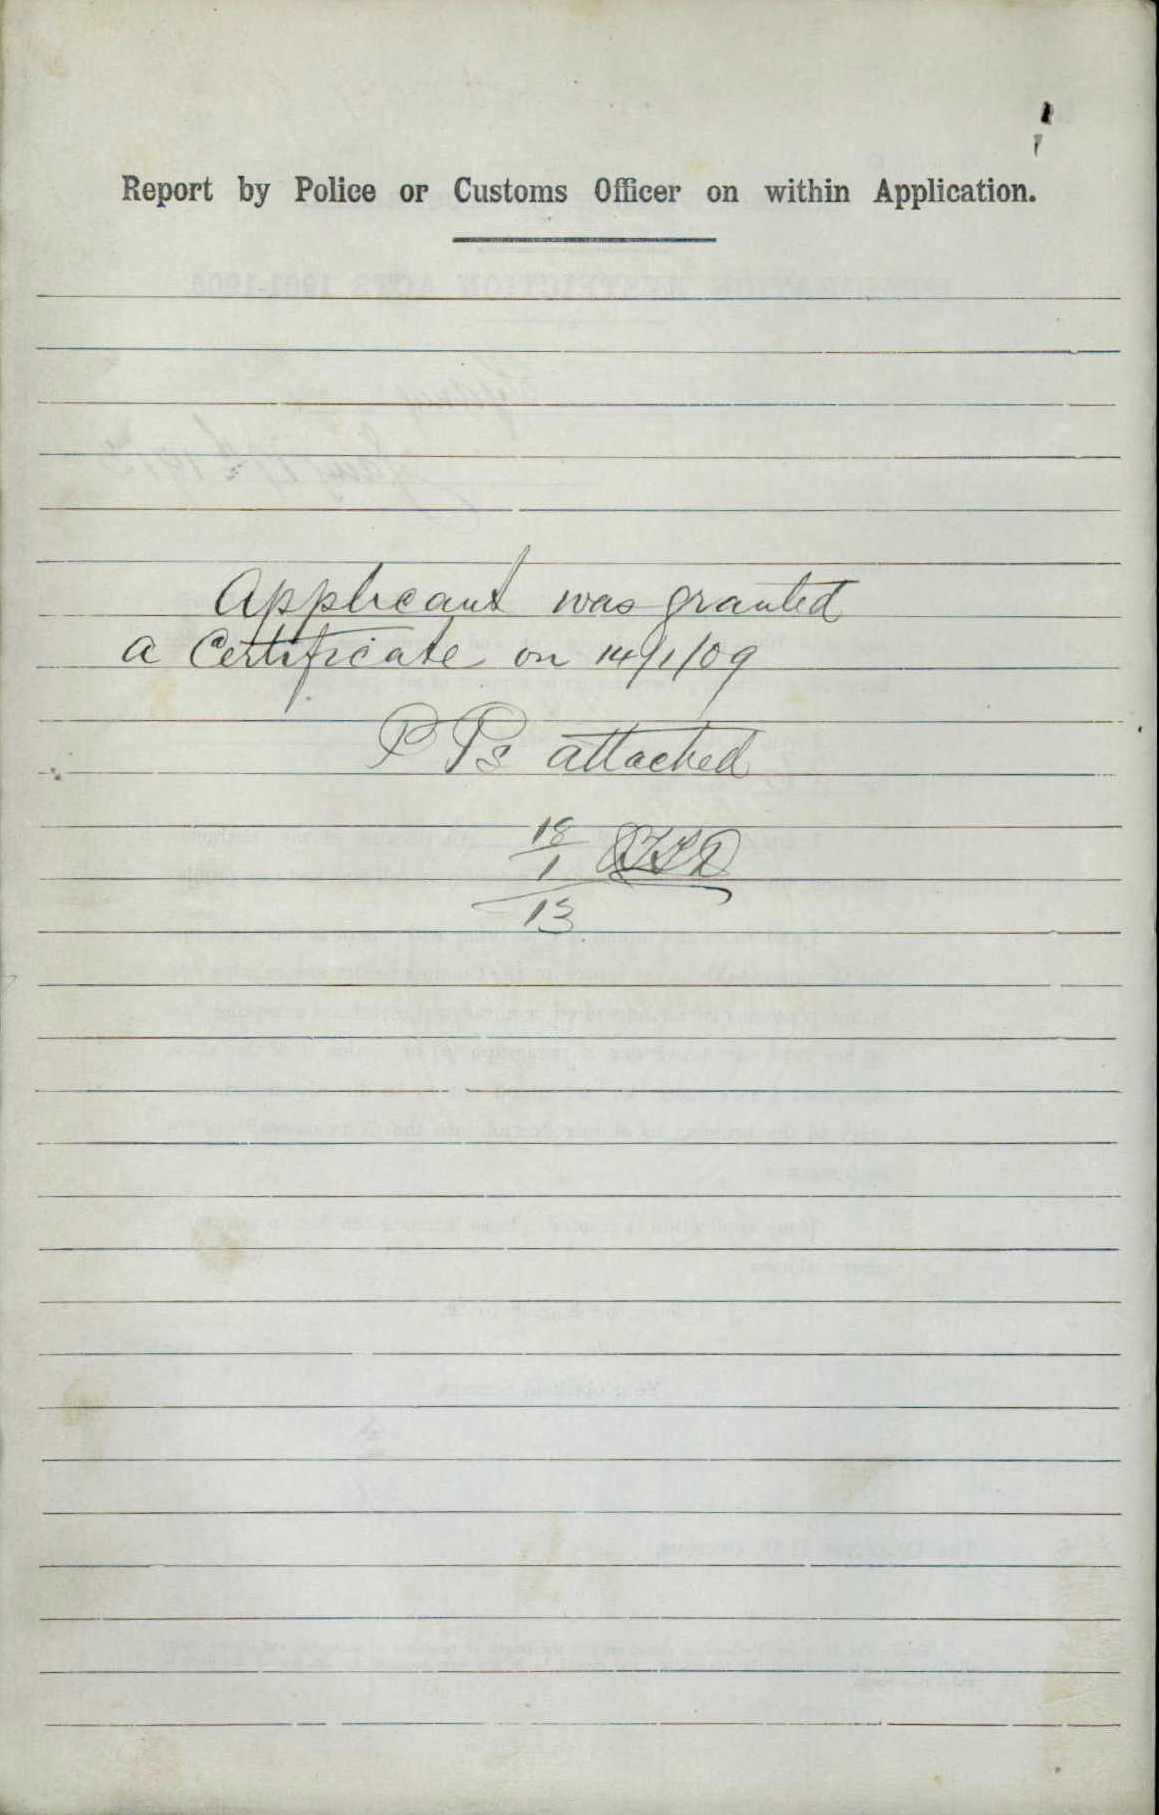 Report by Police or Customs Officer on within Application.
Applicant was granted
a Certificate on 14/1/09
PPs attached
18
1
13